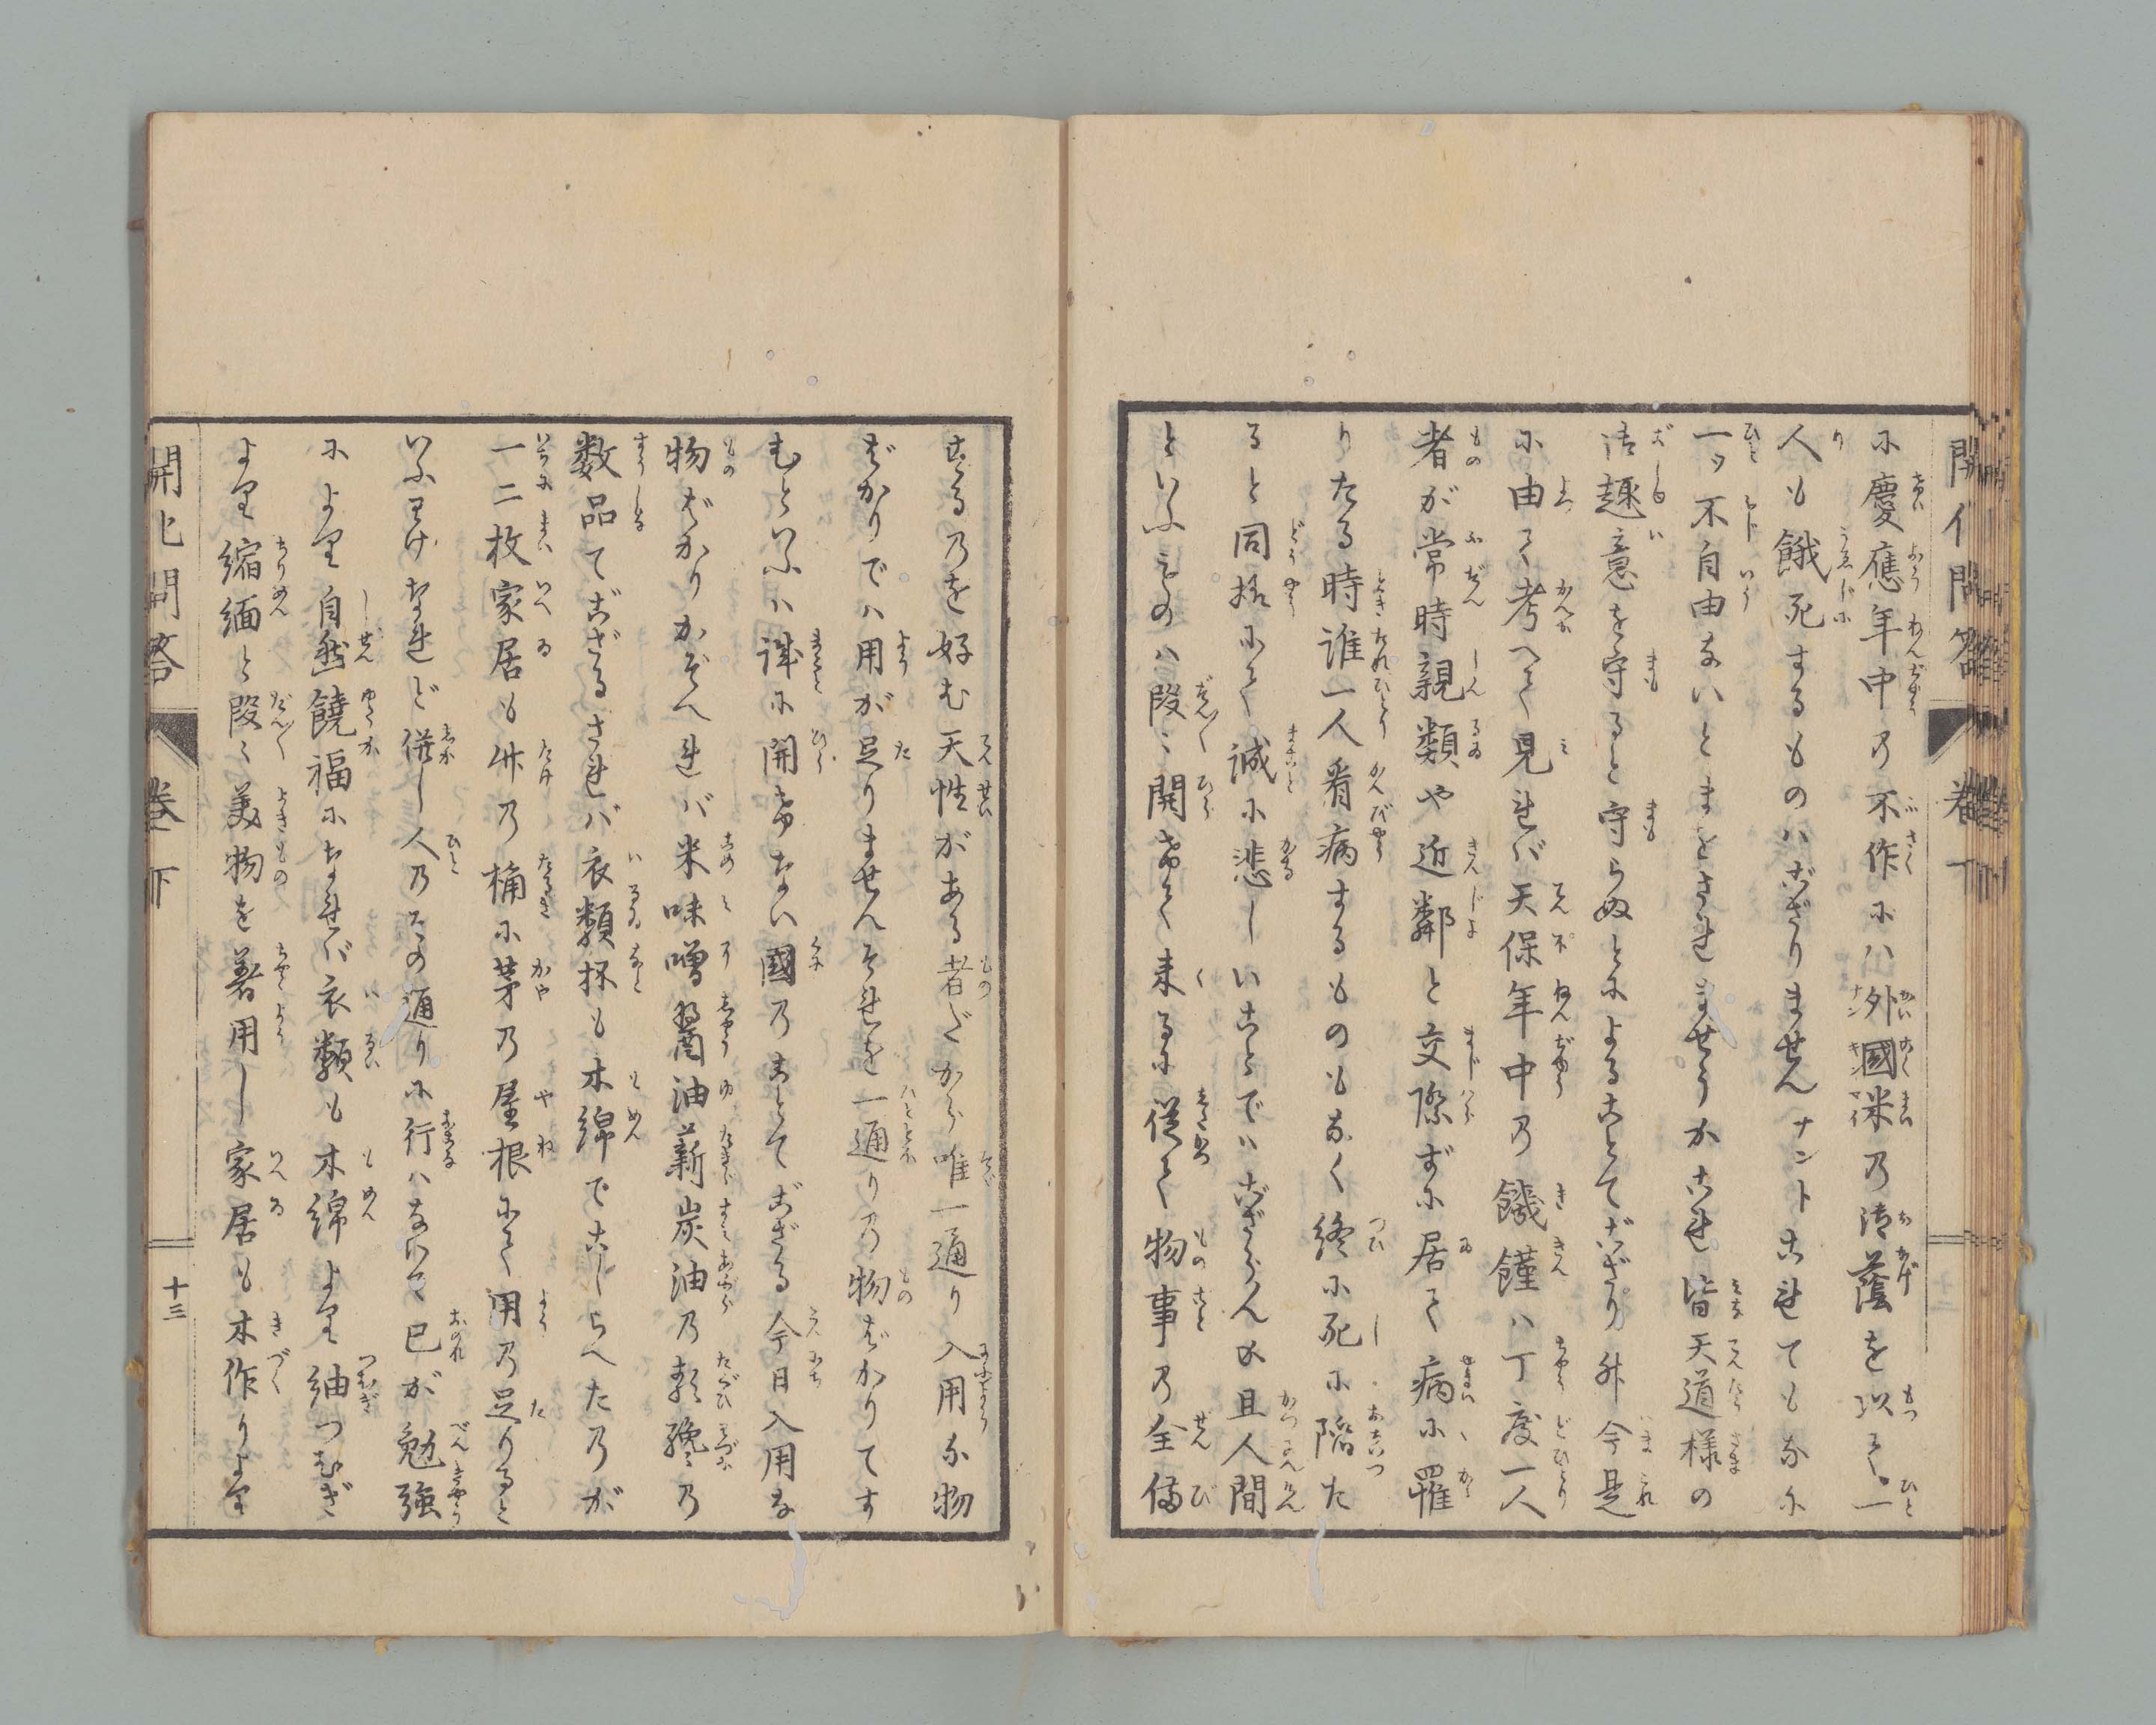 に慶應年中の不作にハ外國米の御蔭を以て一
人も餓死するものハござりませんナントこれでもなに
一ツ不自由ないとまをされませうかこれ皆天道様の
御趣意を守ると守らぬとによることでござり升今是
に由て考へて見れバ天保年中の饑饉ハ丁度一人
者が常時親類や近鄰と交際ずに居て病に罹
りたる時誰一人看病するものもなく終に死に陥た
ると同様にて誠に悲しいことでハござらんの且人間
といふものハ段々開きて来るに従て物事の全備
するのを好む天性がある者だから唯一通り入用な物
ばかりでハ用が足りませんそれを一通りの物ばかりてす
むといふハ誠に開きない國のことでござる今日入用な
物ばかりかぞへれバ米味噌醤油薪炭油の類纔の
数品でござるされバ衣類抔も木綿でこしらへたのが
一二枚家居も竹の桷に茅の屋根にて用の足りると
いふわけなれど併し人のその通りに行ハないで已が勉強
により自然饒福になれバ衣類も木綿より紬つむぎ
より縮緬と段々美物を着用し家居も木作りより
開化問答 巻下 十三